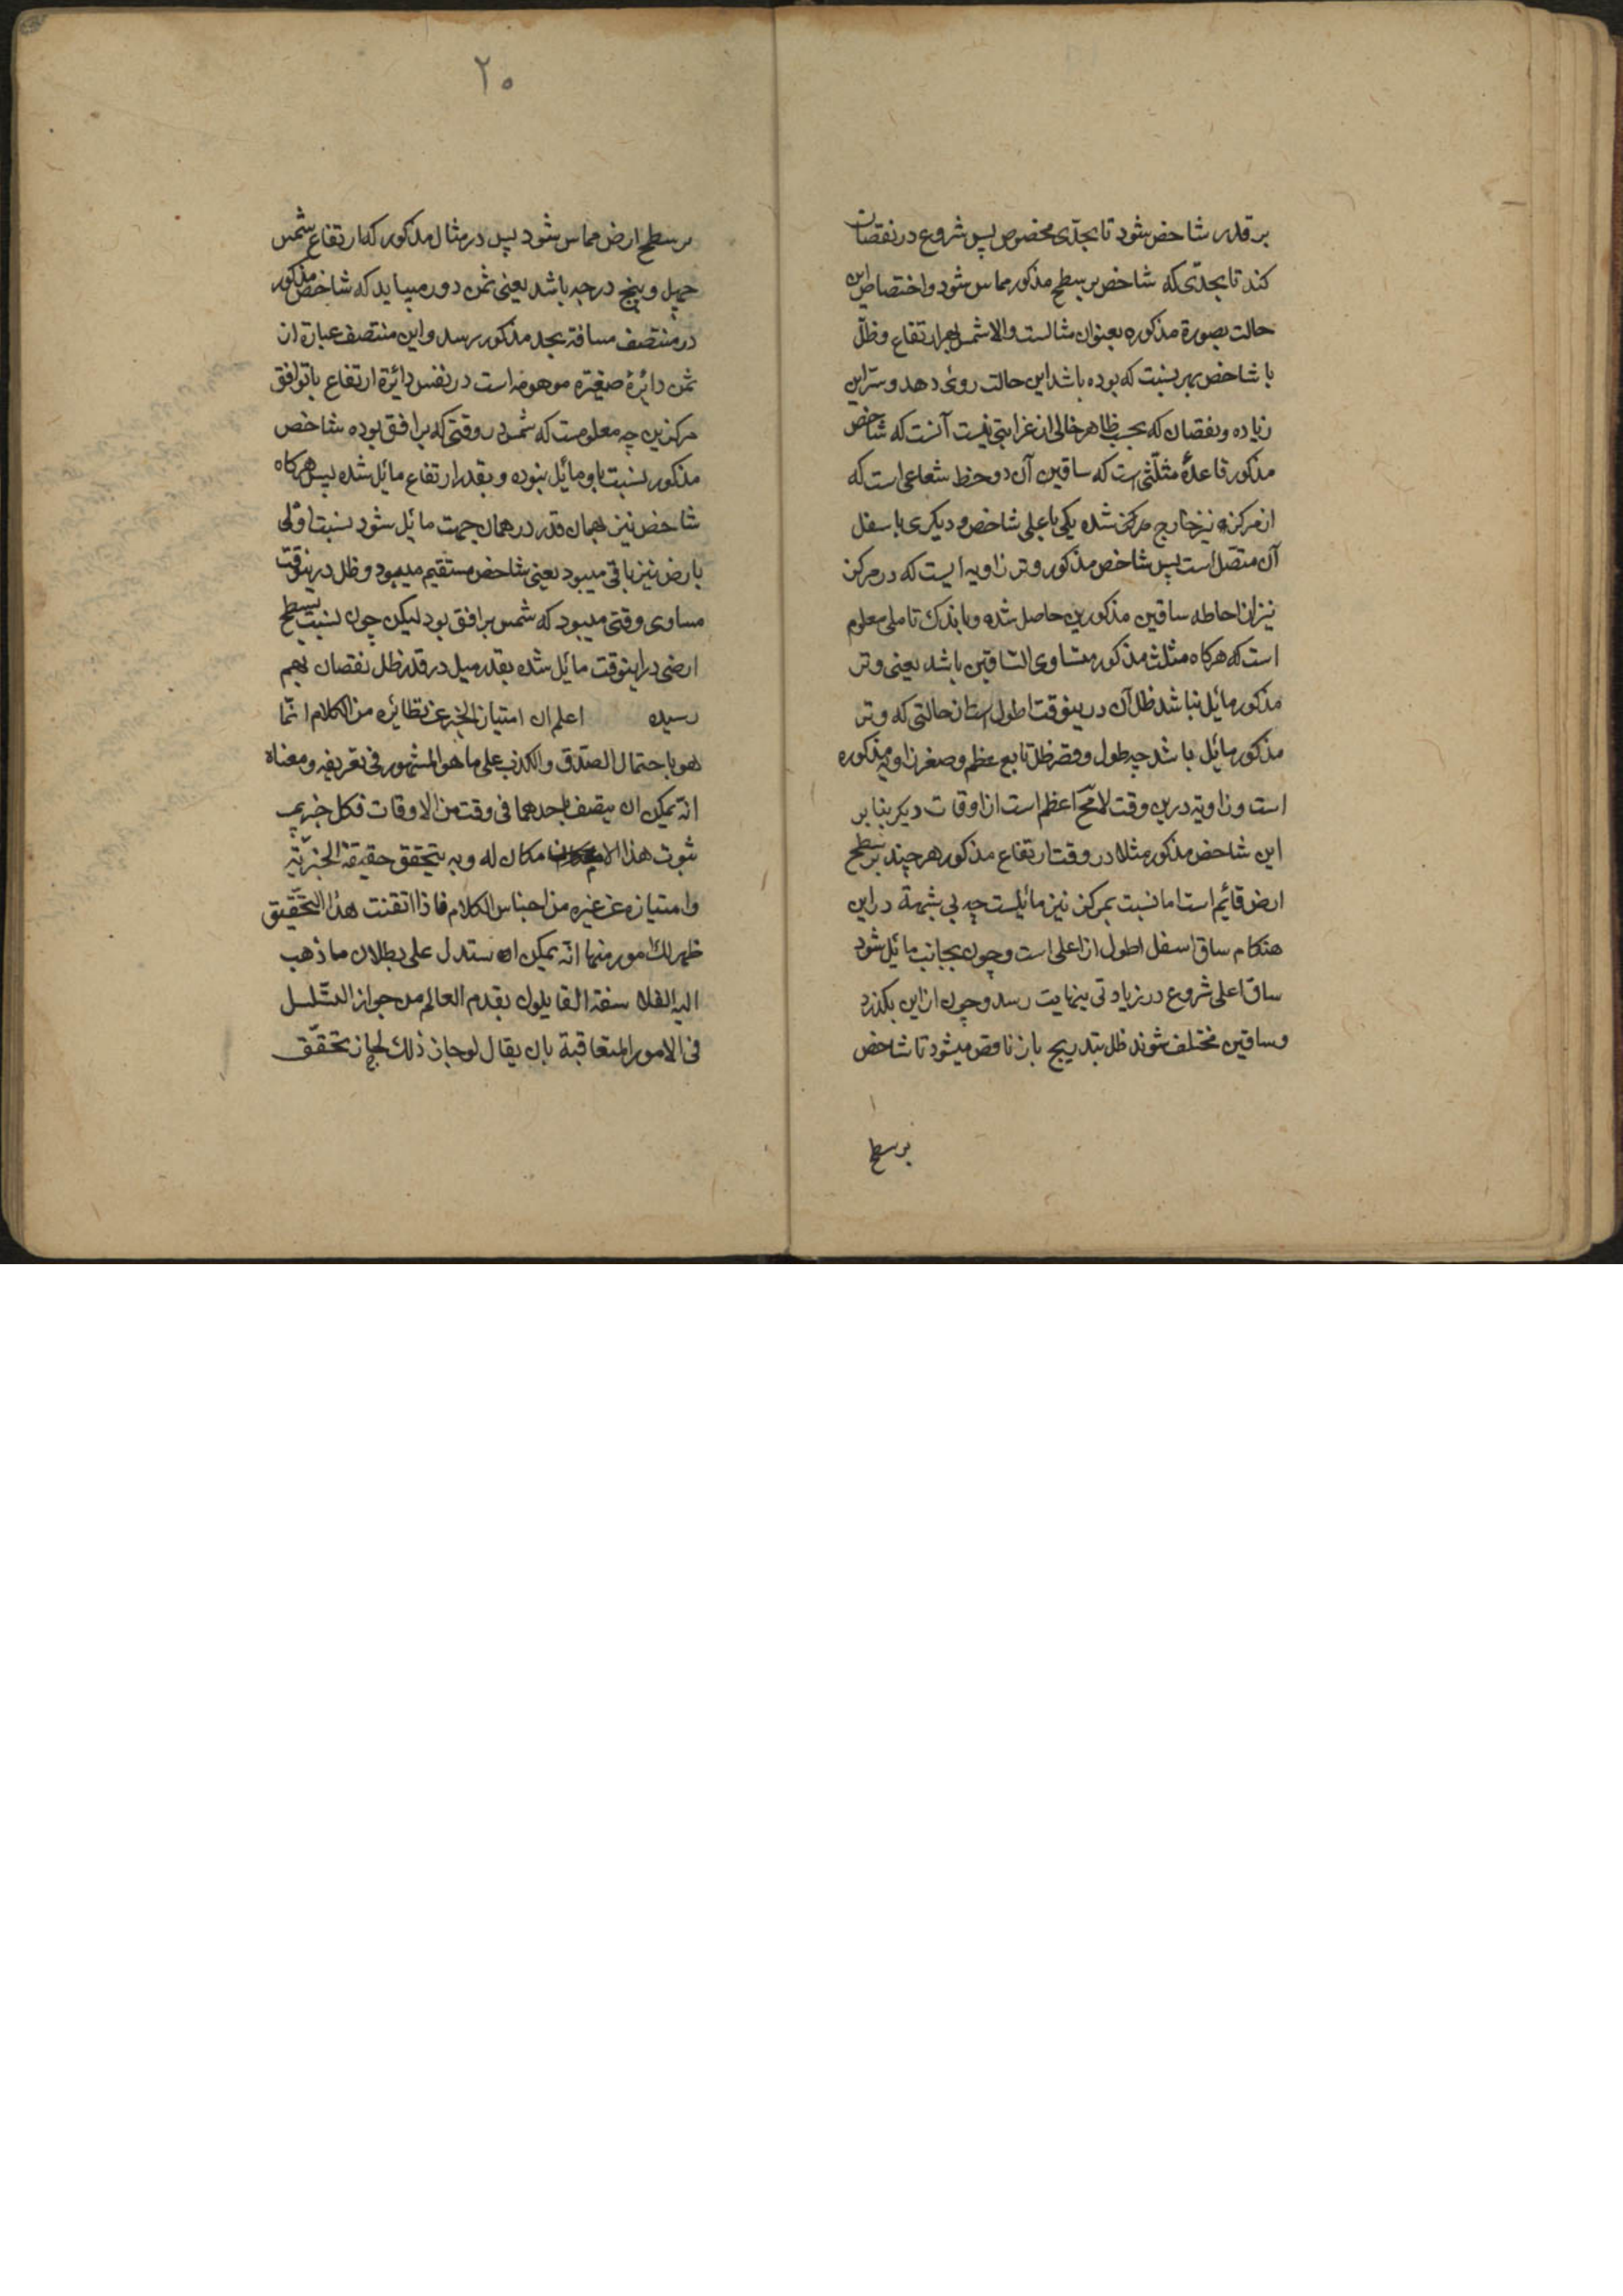 بر قدر شاخص شود تا بحدّی مخصوص پس شروع در نقصان
کند تا بحدّی که شاخص بر سطح مذکور مماس شود و اختصاص این
حالت بصورة مذکوره بعنوان مثالست والا شمس بهر ارتفاع و ظلّ
با شاخص بهر نسبت که بوده باشد این حالت روی دهد و سرّ این
زیاده و نقصان که بحسب ظاهر خالی از غرابتی نیست آنست که شاخص
مذکور قاعدهٔ مثلّثی است که ساقین آن دو خط شعاعی است که
از مرکز نیّر خارج شده یکی باعلی شاخص و دیکری باسفل
آن متصّل است پس شاخص مذکور وتر زاویه ایست که در مرکز
نیّر از احاطه ساقین مذکورین حاصل شده و باندک تاملی معلوم
است که هرکاه مثلث مذکور متساوی الساقین باشد یعنی وتر
مذکور مائل نباشد ظل آن درینوقت اطول است از حالتی که وتر
مذکور مائل باشد چه طول و قصر ظل تابع عظم و صغر زاویه مذکوره
است و زاویه درین وقت لا مح اعظم است از اوقات دیکر بنابر
این شاخص مذکور مثلا در وقت ارتفاع مذکور هر چند بر سطح
ارض قائم است اما نسبت بمرکز نیر مائلست چه بی شبهة در این
هنکام ساق اسفل اطول از اعلی است و چون بجانب مائل شود
ساق اعلی شروع در زیادتی بنهایت رسد و چون از این بکذرد
و ساقین مختلف شوند ظل بتدریج باز ناقص میشود تا شاخص
بر سطح
۲۰
بر سطح ارض مماس شود پس در مثال مذکور که ارتفاع شمس
چهل و پنج درجه باشد یعنی ثمن دور میباید که شاخص مذکور
در منتصف مسافة بحد مذکور برسد و این منتصف عبارة از
ثمن دائرهٔ صغیره موهومه است در نفس دائرة ارتفاع با توافق
مرکزین چه معلومست که شمس در وقتی که بر افق بوده شاخص
مذکور نسبت باو مائل نبوده و بقدر ارتفاع مائل شده پس هرکاه
شاخص نیز بهمان قدر در همان جهت مائل شود نسبت اولی
بارض نیز باقی میبود یعنی شاخص مستقیم میبود و ظل درینوقت
مساوی وقتی میبود که شمس بر افق بود لیکن چون نسبت بسطح
ارضی در اینوقت مائل شده بقدر میل در قدر ظل نقصان بهم
رسیده اعلم ان امتیاز الخبر عن نظائره من الکلام انّما
هو باحتمال الصّدق والکذب علی ما هو المشهور فی تعریفه ومعناه
انّه یمکن ان یتصف باحدهما فی وقت من الاوقات فکل خبر یجب
ثبوت هذا الامکان له وبه یتحقق حقیقة الخبریّة
وامتیازه عن غیره من اجناس الکلام فاذا اتقنت هذا التّحقیق
ظهر لک امور منها انّه یمکن ان یستدل علی بطلان ما ذهب
الیه الفلاسفة القایلون بقدم العالم من جواز التسّلسل
فی الامور المتعاقبة بان یقال لو جاز ذلک لجاز تحقّق